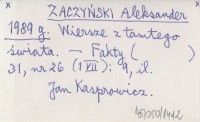 ZACZYŃSKI Aleksander
1989 g. Wiersze z tamtego
świata. – Fakty (        )
31, nr 26 (1 VII): 9, il.
Jan Kasprowicz.